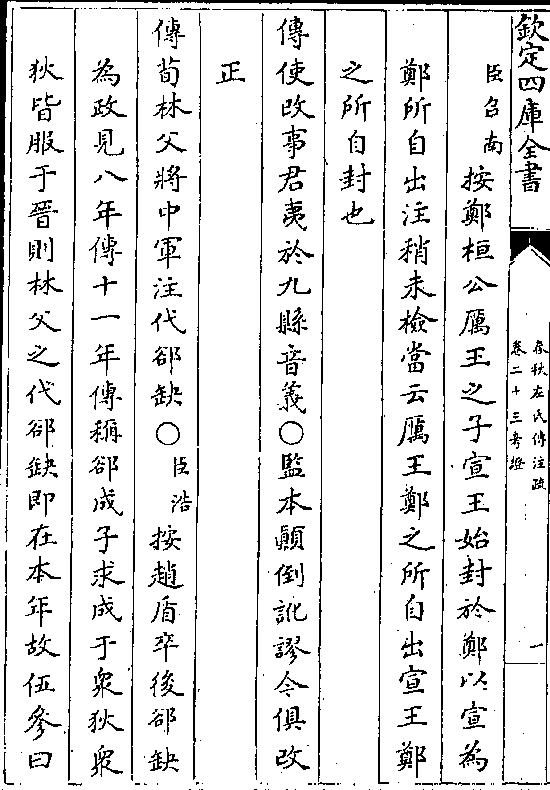 欽定四庫全書
春秋左氏傳注疏
卷二十三考證
一
臣召南按鄭桓公厲王之子宣王始封於鄭以宣為
鄭所自出注稍未檢當云厲王鄭之所自出宣王鄭
之所自封也
傳使改事君夷於九縣音義○監本顛倒訛謬今俱改
正
傳荀林父將中軍注代郤缺○臣浩按趙盾卒後郤缺
為政見八年傳十一年傳稱郤成子求成于衆狄衆
狄皆服于晉則林父之代郤缺即在本年故伍參曰